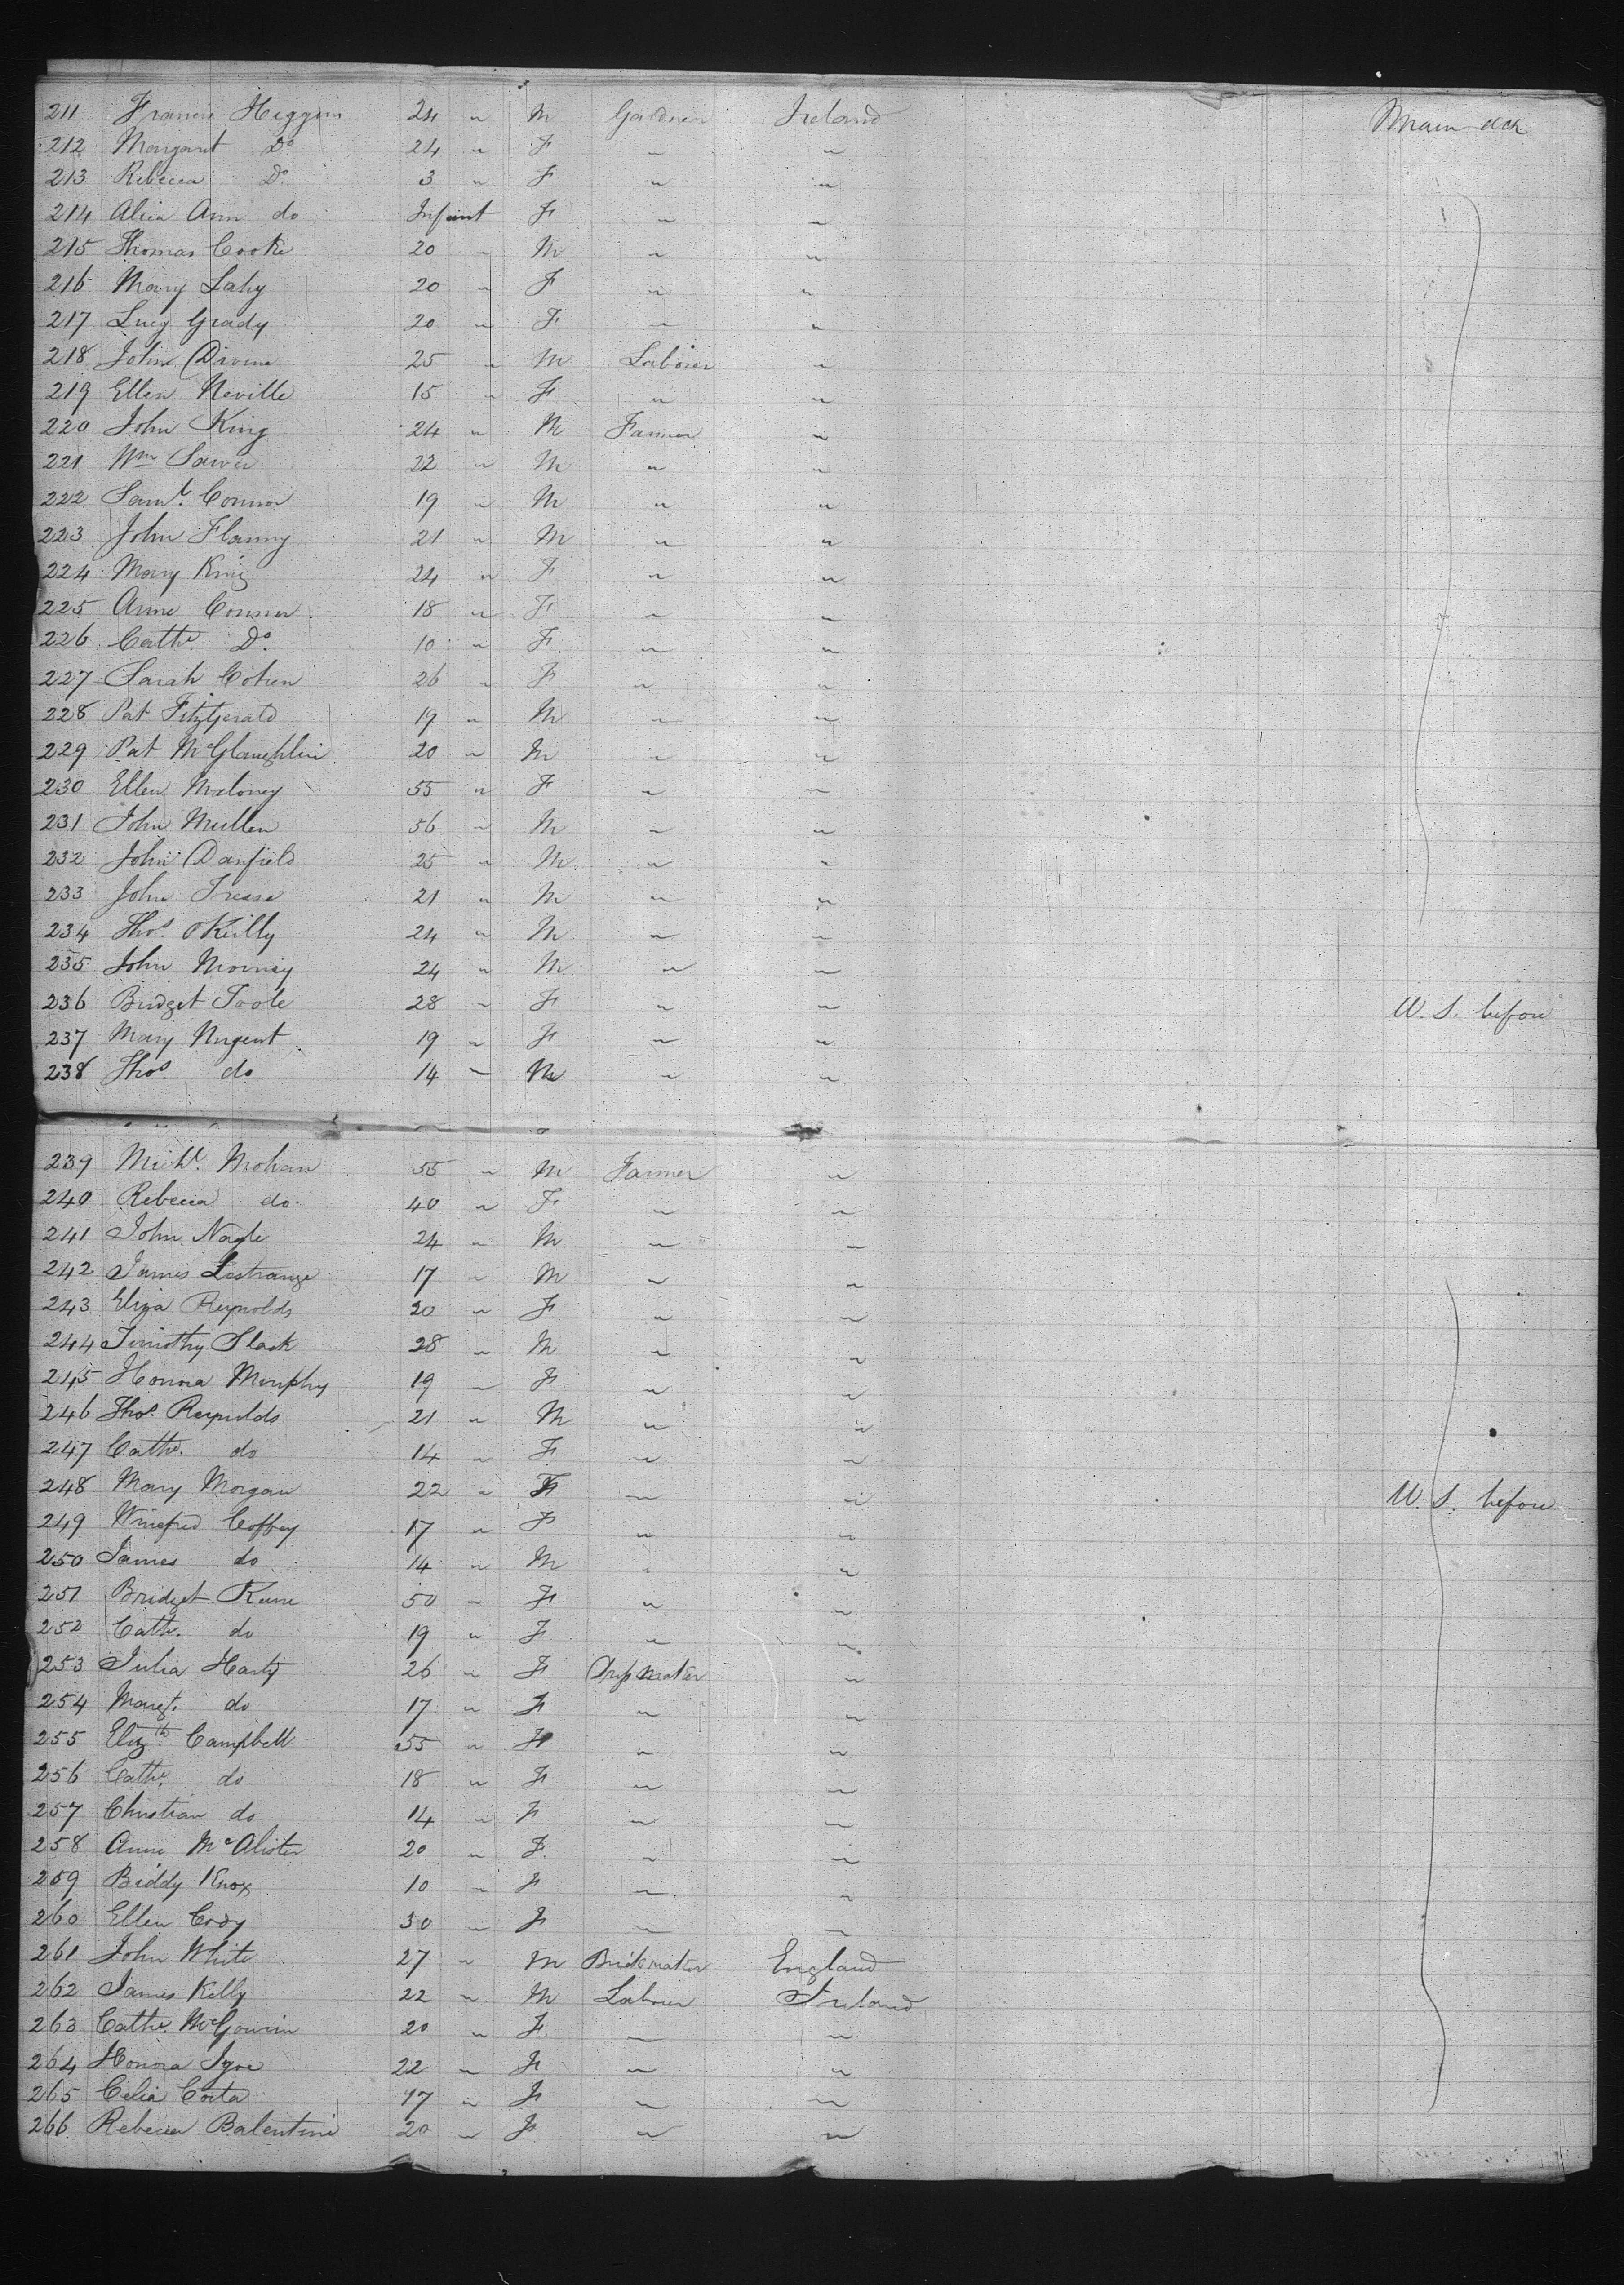 211 Francis Higgins 24 " M Gardner Ireland Main deck
212 Margaret Do 24 " F " "
213 Rebecca Do 3 " F " "
214 Alicia Ann do Infant F " "
215 Thomas Cooke 20 " M " "
216 Mary Lahy 20 " F " "
217 Lucy Grady 20 " F " "
218 John Divine 25 " M Laborer "
219 Ellen Neville 15 " F " "
220 John King 24 " M Farmer "
221 Wm 22 " M " "
222 Saml. Connor 19 " M " "
223 John Flanny 21 " M " "
224 Mary King 24 " F " "
225 Anne Connor 18 " F " "
226 Cathe. Do. 10 " F " "
227 Sarah Cohen 26 " F " "
228 Pat Fitzgerald 19 " M " "
229 Pat McGlaughlin 20 " M " "
230 Ellen Maloney 55 " F " "
231 John Mullen 56 " M " "
232 John Danfield 25 " M " "
233 John 21 " M " "
234 Thos. OKeilly 24 " M " "
235 John 24 " M " "
236 Bridget Toole 28 " F " " U. S. before
237 Mary Nugent 19 " F " "
238 Thos. do 14 " M " "
239 Michl. Mohan 55 " M Farmer "
240 Rebecca do. 40 " F " "
241 John Nagle 24 " M " "
242 James Lestrange 17 " M " "
243 Eliza Reynolds 20 " F " "
244 Timothy Slack 28 " M " "
245 Honora Murphy 19 " F " "
246 Thos. Reynolds 21 " M " "
247 Cathe. do 14 " F " "
248 Mary Morgan 22 " F " " U. S. before
249 Winefred Coffey 17 " F " "
250 James do 14 " M " "
251 Bridget Keine 50 " F " "
252 Cath. do 19 " F " "
253 Julia Harty 26 " F Dressmaker "
254 Margt. do 17 " F " "
255 Elizth Campbell 55 " F " "
256 Cathe. do 18 " F " "
257 Christian do 14 " F " "
258 Anne McAlister 20 " F " "
259 Biddy Knox 10 " F " "
260 Ellen Cody 30 " F " "
261 John White 27 " M Brickmaker England
262 James Kelly 22 " M Labourer Ireland
263 Cathe. McGowrin 20 " F " "
264 Honora 22 " F " "
265 Celia Costa 17 " F " "
266 Rebecca Balentine 20 " F " "